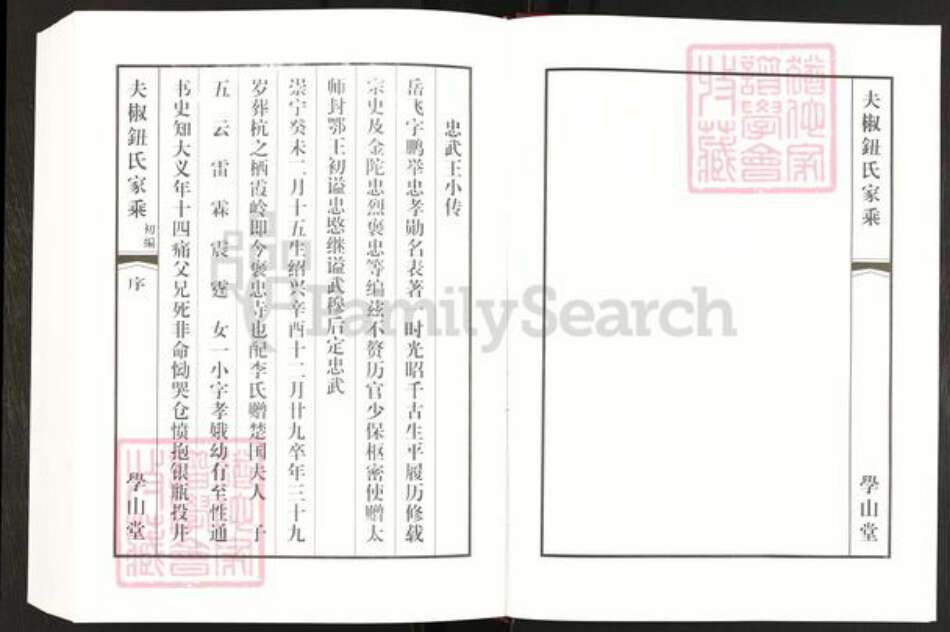 夫椒鈕氏家乘
學山堂
忠武王小传
岳飞字鹏举忠孝勋名表著 时光昭千古生平履历修载
宋史及金陀忠烈褒忠等编兹不赘历官少保枢密使赠太
师封鄂王初谥忠愍继谥武穆后定忠武
崇宁癸未二月十五生绍兴辛酉十二月廿九卒年三十九
岁葬杭之栖霞岭即今褒忠寺也配李氏赠楚国夫人 子
五 云 雷 霖 震 霆 女一小字孝娥幼有至性通
书史知大义年十四痛父兄死非命恸哭仓愤抱银瓶投井
夫椒鈕氏家乘 初编
序
學山堂
FamilySearch